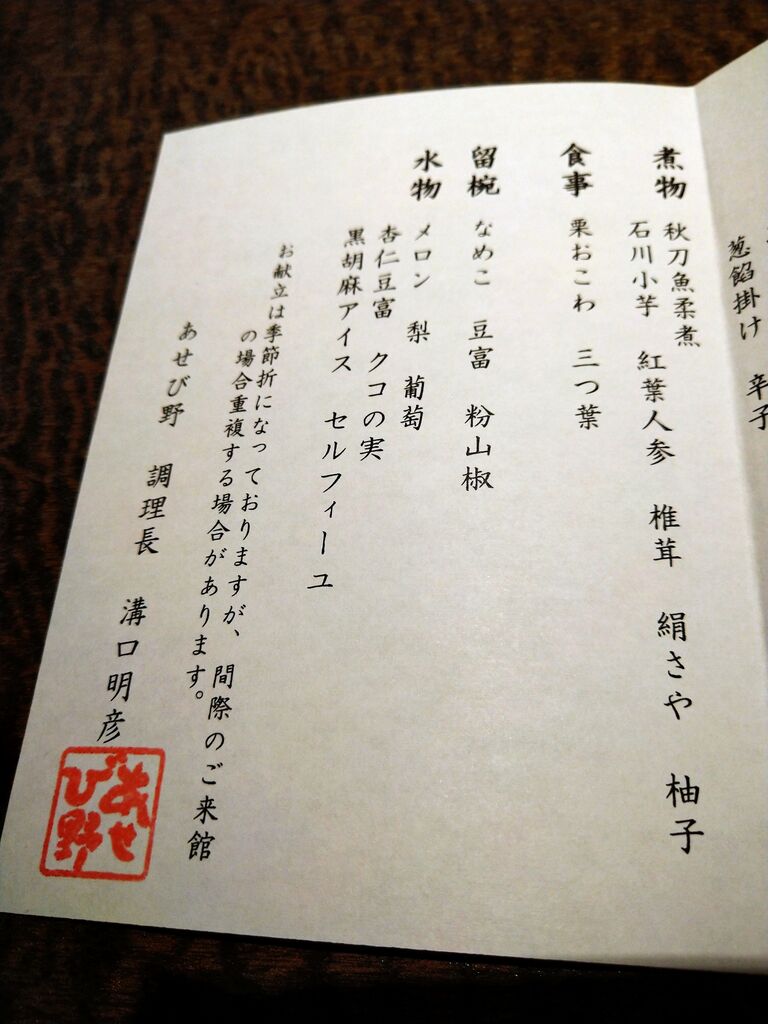 葱餡掛け 辛子
煮物 秋刀魚柔煮
石川小芋 紅葉人参 椎茸 絹さや 柚子
食事 栗おこわ 三つ葉
留椀 なめこ 豆富 粉山椒
水物 メロン 梨 葡萄
杏仁豆富 クコの実
黒胡麻アイス セルフィーユ
お献立は季節折になっておりますが、間際のご来館
の場合重複する場合があります。
あせび野 調理長 溝口明彦
あせ
び野